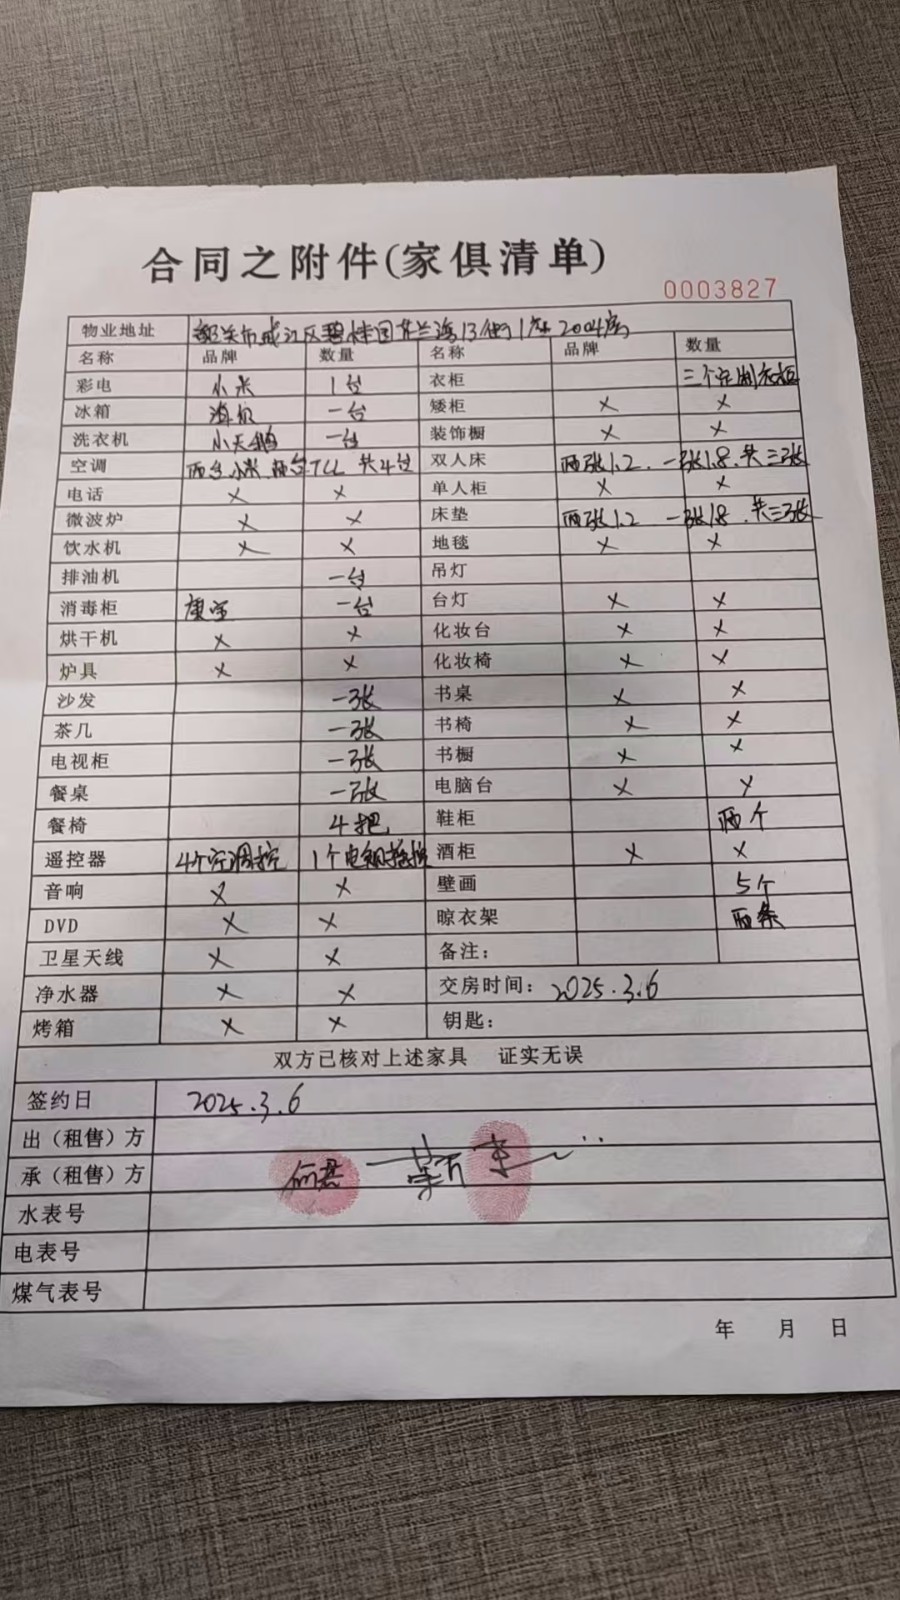 合同之附件(家俱清单)
0003827
物业地址 韶关市武江区碧桂园芷兰湾13街1座2004房
名称 品牌 数量 名称 品牌 数量
彩电 小米 1台 衣柜 三个定制衣柜
冰箱 一台 矮柜 × ×
洗衣机 小天鹅 一台 装饰橱 × ×
空调 两台小米 两台TCL 共4台 双人床 两张1.2 一张1.8 共三张
电话 × × 单人柜 × ×
微波炉 × × 床垫 两张1.2 一张1.8 共三张
饮水机 × × 地毯 × ×
排油机 一台 吊灯
消毒柜 康宝 一台 台灯 × ×
烘干机 × × 化妆台 × ×
炉具 × × 化妆椅 × ×
沙发 一张 书桌 × ×
茶几 一张 书椅 × ×
电视柜 一张 书橱 × ×
餐桌 一张 电脑台 × ×
餐椅 4把 鞋柜 两个
遥控器 4个空调控 1个电视摇控 酒柜 × ×
音响 × × 壁画 5个
DVD × × 晾衣架 两条
卫星天线 × × 备注：
净水器 × × 交房时间：2025.3.6
烤箱 × × 钥匙：
双方已核对上述家具 证实无误
签约日 2025.3.6
出（租售）方
承（租售）方
水表号
电表号
煤气表号
年 月 日